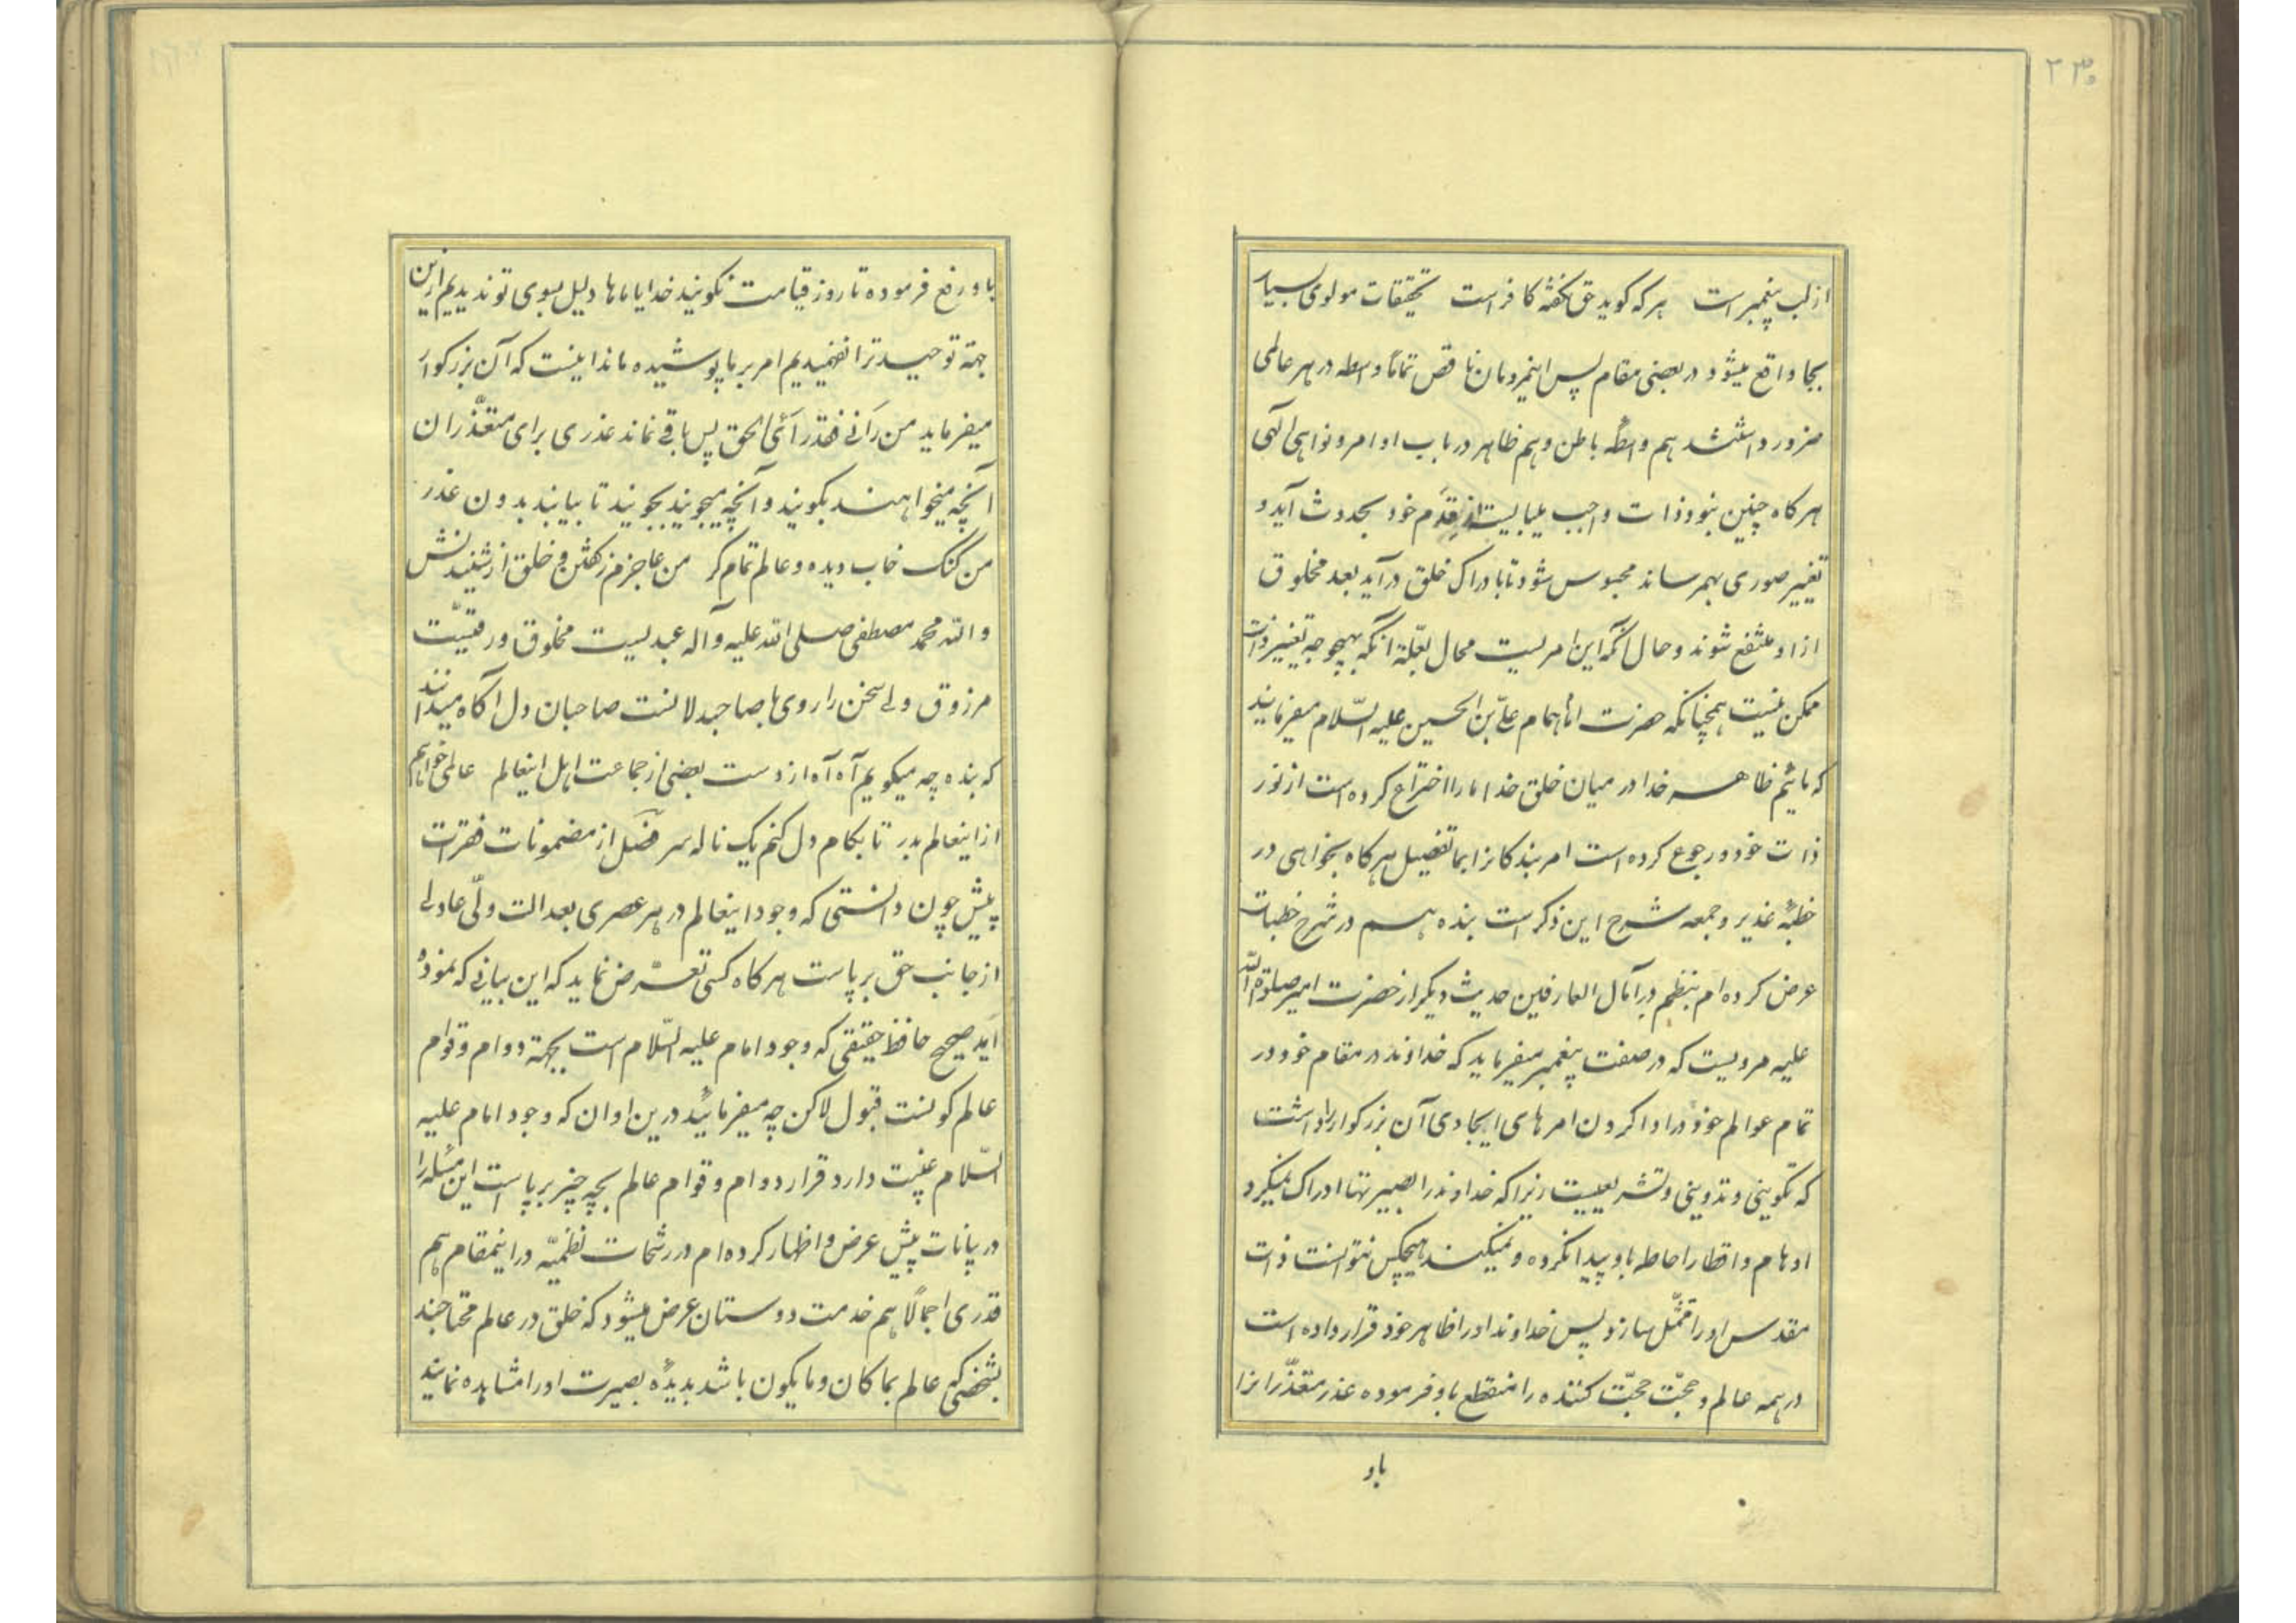 ۲۳۰
از لب پیغمبر است هر که کوید حق نکفته کافر است تحقیقات مولوی بسیار
بجا واقع میشود در بعضی مقام پس اینمردمان ناقص تماماً واسطه در هر عالمی
ضرور داشتند هم واسطهٔ باطن و هم ظاهر در باب اوامر و نواهی الهی
هرکاه چنین نبود ذات واجب میبایست از قدم خود بحدوث آید و
تغییر صوری بهمرساند محبوس شود تا بادراک خلق درآید بعد مخلوق
از او منتفع شوند و حال آنکه این امریست محال بعلّة آنکه بهیچوجه تغییر ذات
ممکن نیست همچنانکه حضرت امام همام علیّ بن الحسین علیه السّلام میفرمایند
که مائیم ظاهر خدا در میان خلق خدا ما را اختراع کرده است از نور
ذات خود و رجوع کرده است امر بندکانرا بما تفصیل هرکاه بخواهی در
خطبهٔ غدیر و جمعه شرح این ذکر است بنده هم در شرح خطبات
عرض کرده‌ام بنظم در آمال العارفین حدیث دیکر از حضرت امیر صلوة الله
علیه مرویست که در صفت پیغمبر میفرماید که خداوند در مقام خود در
تمام عوالم خود در ادا کردن امرهای ایجادی آن بزرکوار را داشت
که تکوینی و تدوینی و تشریعیست زیرا که خداوند را بصیرتها ادراک نمیکرد
اوهام و اقطار احاطه باو پیدا نکرده و نمیکند هیچکس نتوانست ذات
مقدس او را متمثّل سازد پس خداوند او را ظاهر خود قرار داده است
در همه عالم و حجّت حجّت کننده را منقطع باو فرموده عذر متعذّرانرا
باو
باو رفع فرموده تا روز قیامت نکویند خدایا ما ها دلیل بسوی تو ندیدیم ازین
جهة توحید ترا نفهمیدیم امر بر ما پوشیده ماند اینست که آن بزرکوار
میفرماید من رآنی فقد رآئ الحق پس باقی نماند عذری برای متعذّران
آنچه میخواهند بکویند و آنچه میجویند بجویند تا بیابند بدون عذر
من کنک خاب دیده و عالم تمام کر من عاجزم زکفتن و خلق از شنیدنش
و الله محمد مصطفی صلی الله علیه و آله عبدیست مخلوق و رقیّت
مرزوق ولی سخن را روی با صاحبدلانست صاحبان دل آکاه میدانند
که بنده چه میکویم آه آه از دست بعضی از جماعت اهل اینعالم عالمی خواهم
از اینعالم بدر تا بکام دل کنم یک ناله سر فصل از مضمونات فقرات
پیش چون دانستی که وجود اینعالم در هر عصری بعدالت ولّی عادلی
از جانب حق برپاست هرکاه کسی تعرّض نماید که این بیانی که نموده
آید صحیح حافظ حقیقی که وجود امام علیه السّلام است بجهة دوام و قوام
عالم کونست قبول لاکن چه میفرمائید درین اوان که وجود امام علیه
السّلام غیبت دارد قرار دوام و قوام عالم بچه چیز برپاست این مسئله را
در بیانات پیش عرض و اظهار کرده‌ام در رشحات نظمیّه در اینمقام هم
قدری اجمالاً هم خدمت دوستان عرض میشود که خلق در عالم محتاجند
بشخصی که عالم بما کان و ما یکون باشد بدیدهٔ بصیرت او را مشاهده نمایند